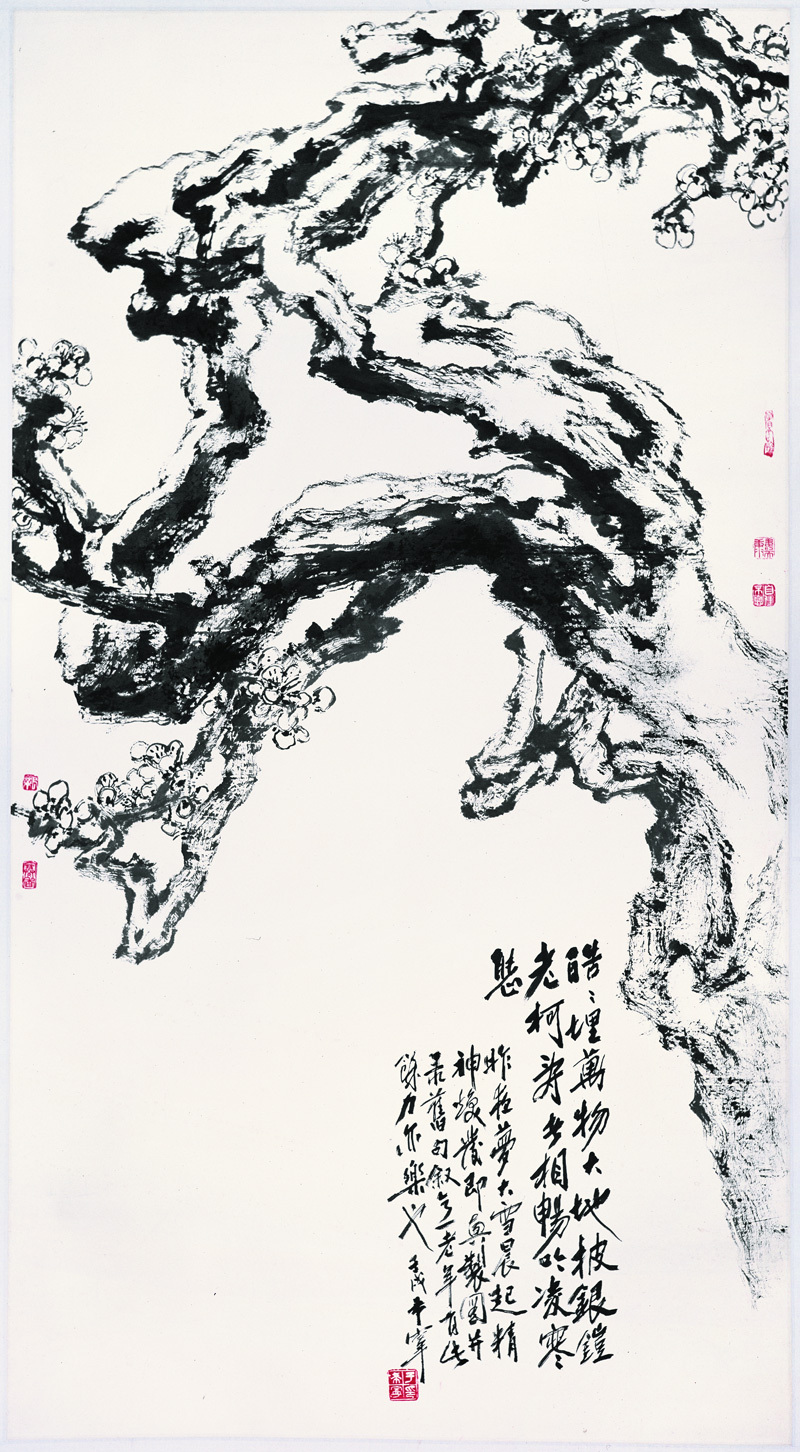 皓〻埋萬物大地披銀鎧
老柯相暢吟凌寒
態
昨夜夢大雪晨起精
神煥發即興製圖并
录舊句叙老年有此
餘力亦樂也 壬戌希寧